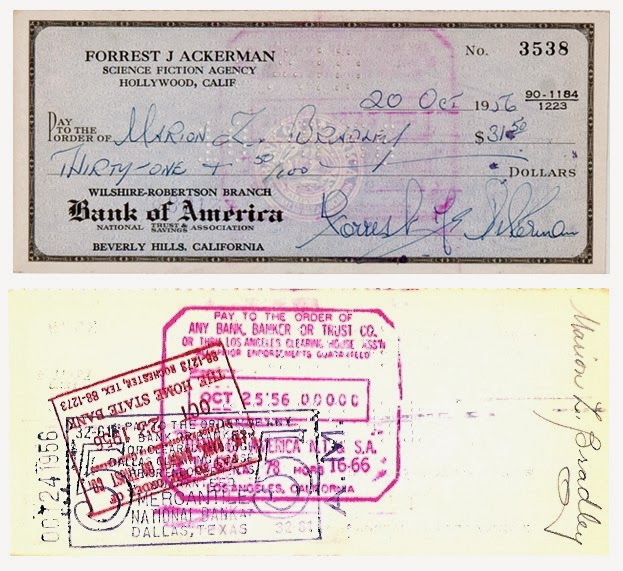 FORREST J ACKERMAN
SCIENCE FICTION AGENCY
HOLLYWOOD, CALIF
No. 3538
20 Oct 1956
90-1184
1223
PAY
TO THE
ORDER OF Marion Z. Bradley $31.50
Thirty-one + 50/100 DOLLARS
WILSHIRE-ROBERTSON BRANCH
Bank of America
NATIONAL TRUST & SAVINGS ASSOCIATION
BEVERLY HILLS, CALIFORNIA
Forrest J Ackerman
PAY TO THE ORDER OF
ANY BANK, BANKER OR TRUST CO.
OR THRU LOS ANGELES CLEARING HOUSE ASS'N
ENDORSEMENTS GUARANTEED
OCT 25'56 00000
AMERICA N. S.A.
16-66
LOS ANGELES, CALIFORNIA
THE HOME STATE BANK
88-1273 ROCHESTER, TEX. 88-1273
OCT 1956
OCT 24 1956
PAY TO THE ORDER
MERCANTILE
NATIONAL BANK AT
DALLAS, TEXAS
Marion Z. Bradley